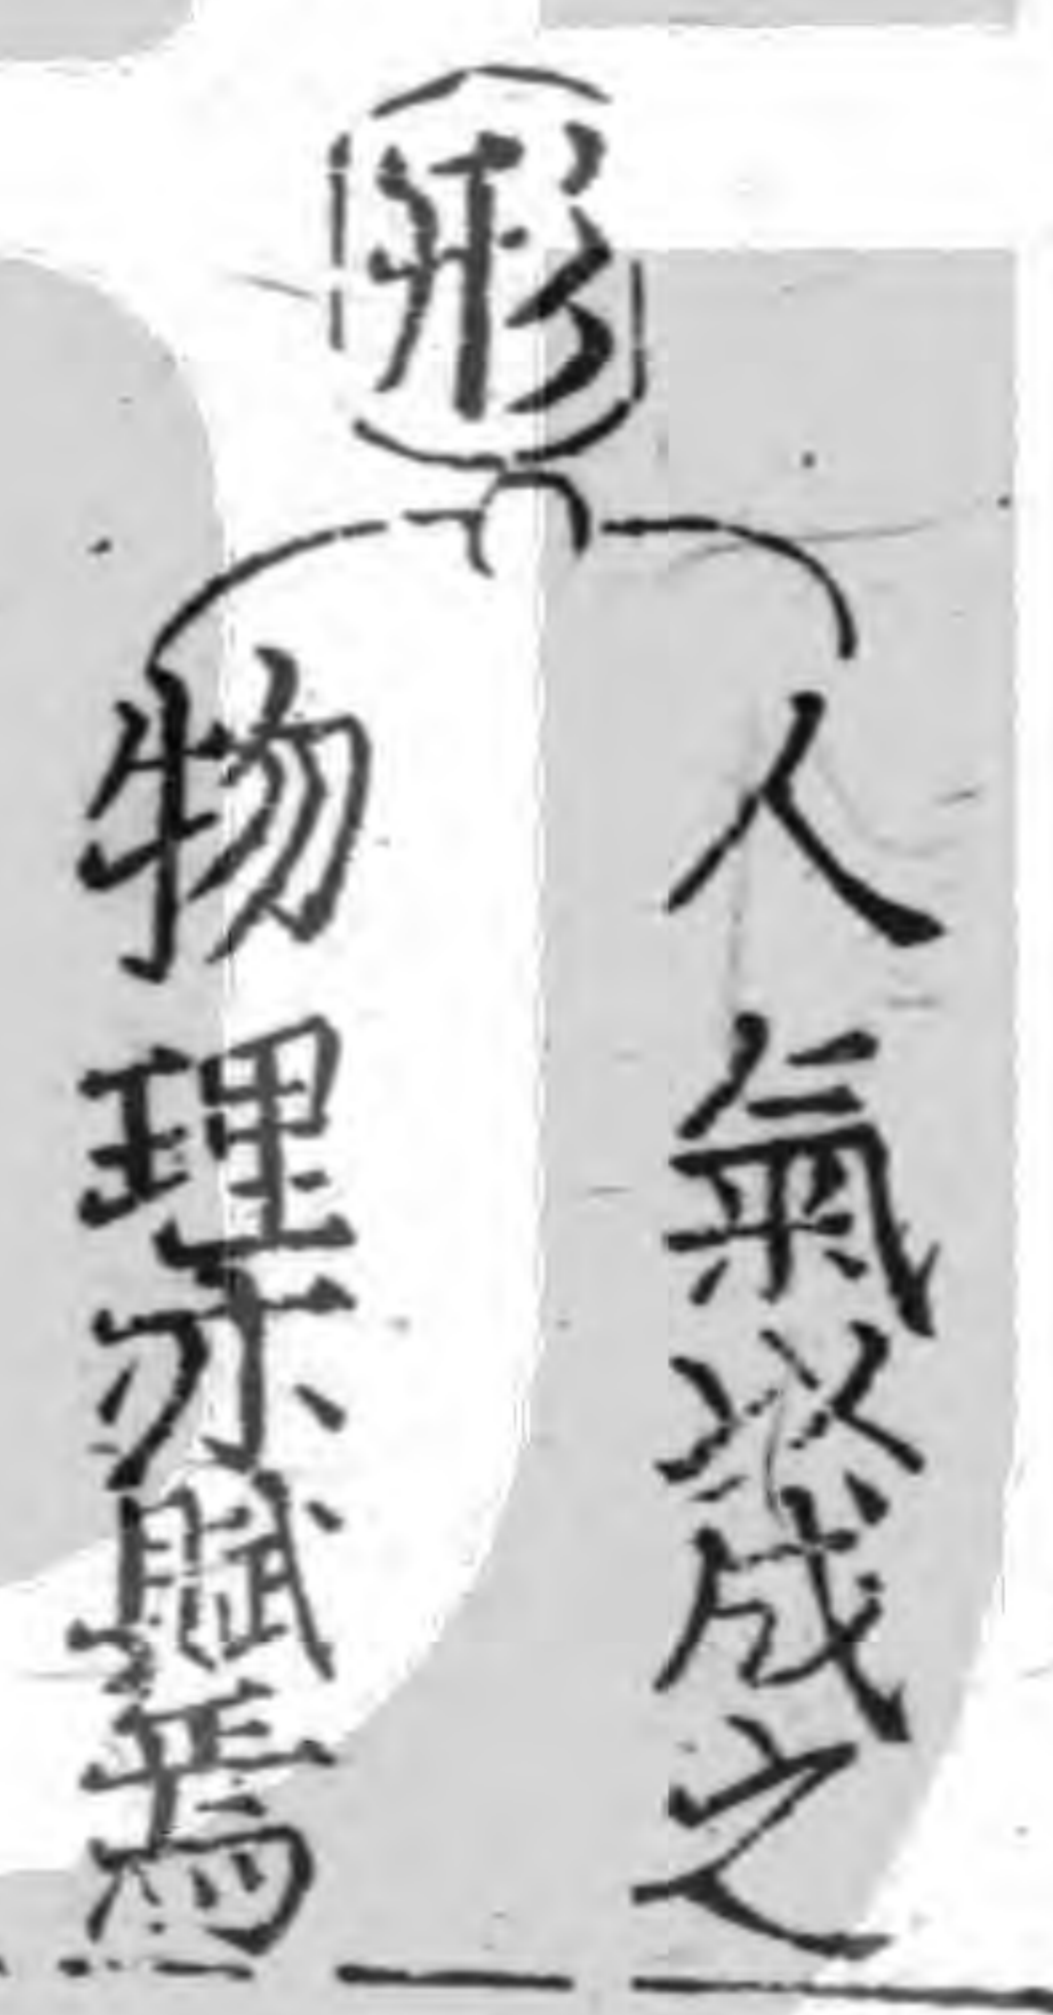 形
人氣以成之
物理亦賦焉